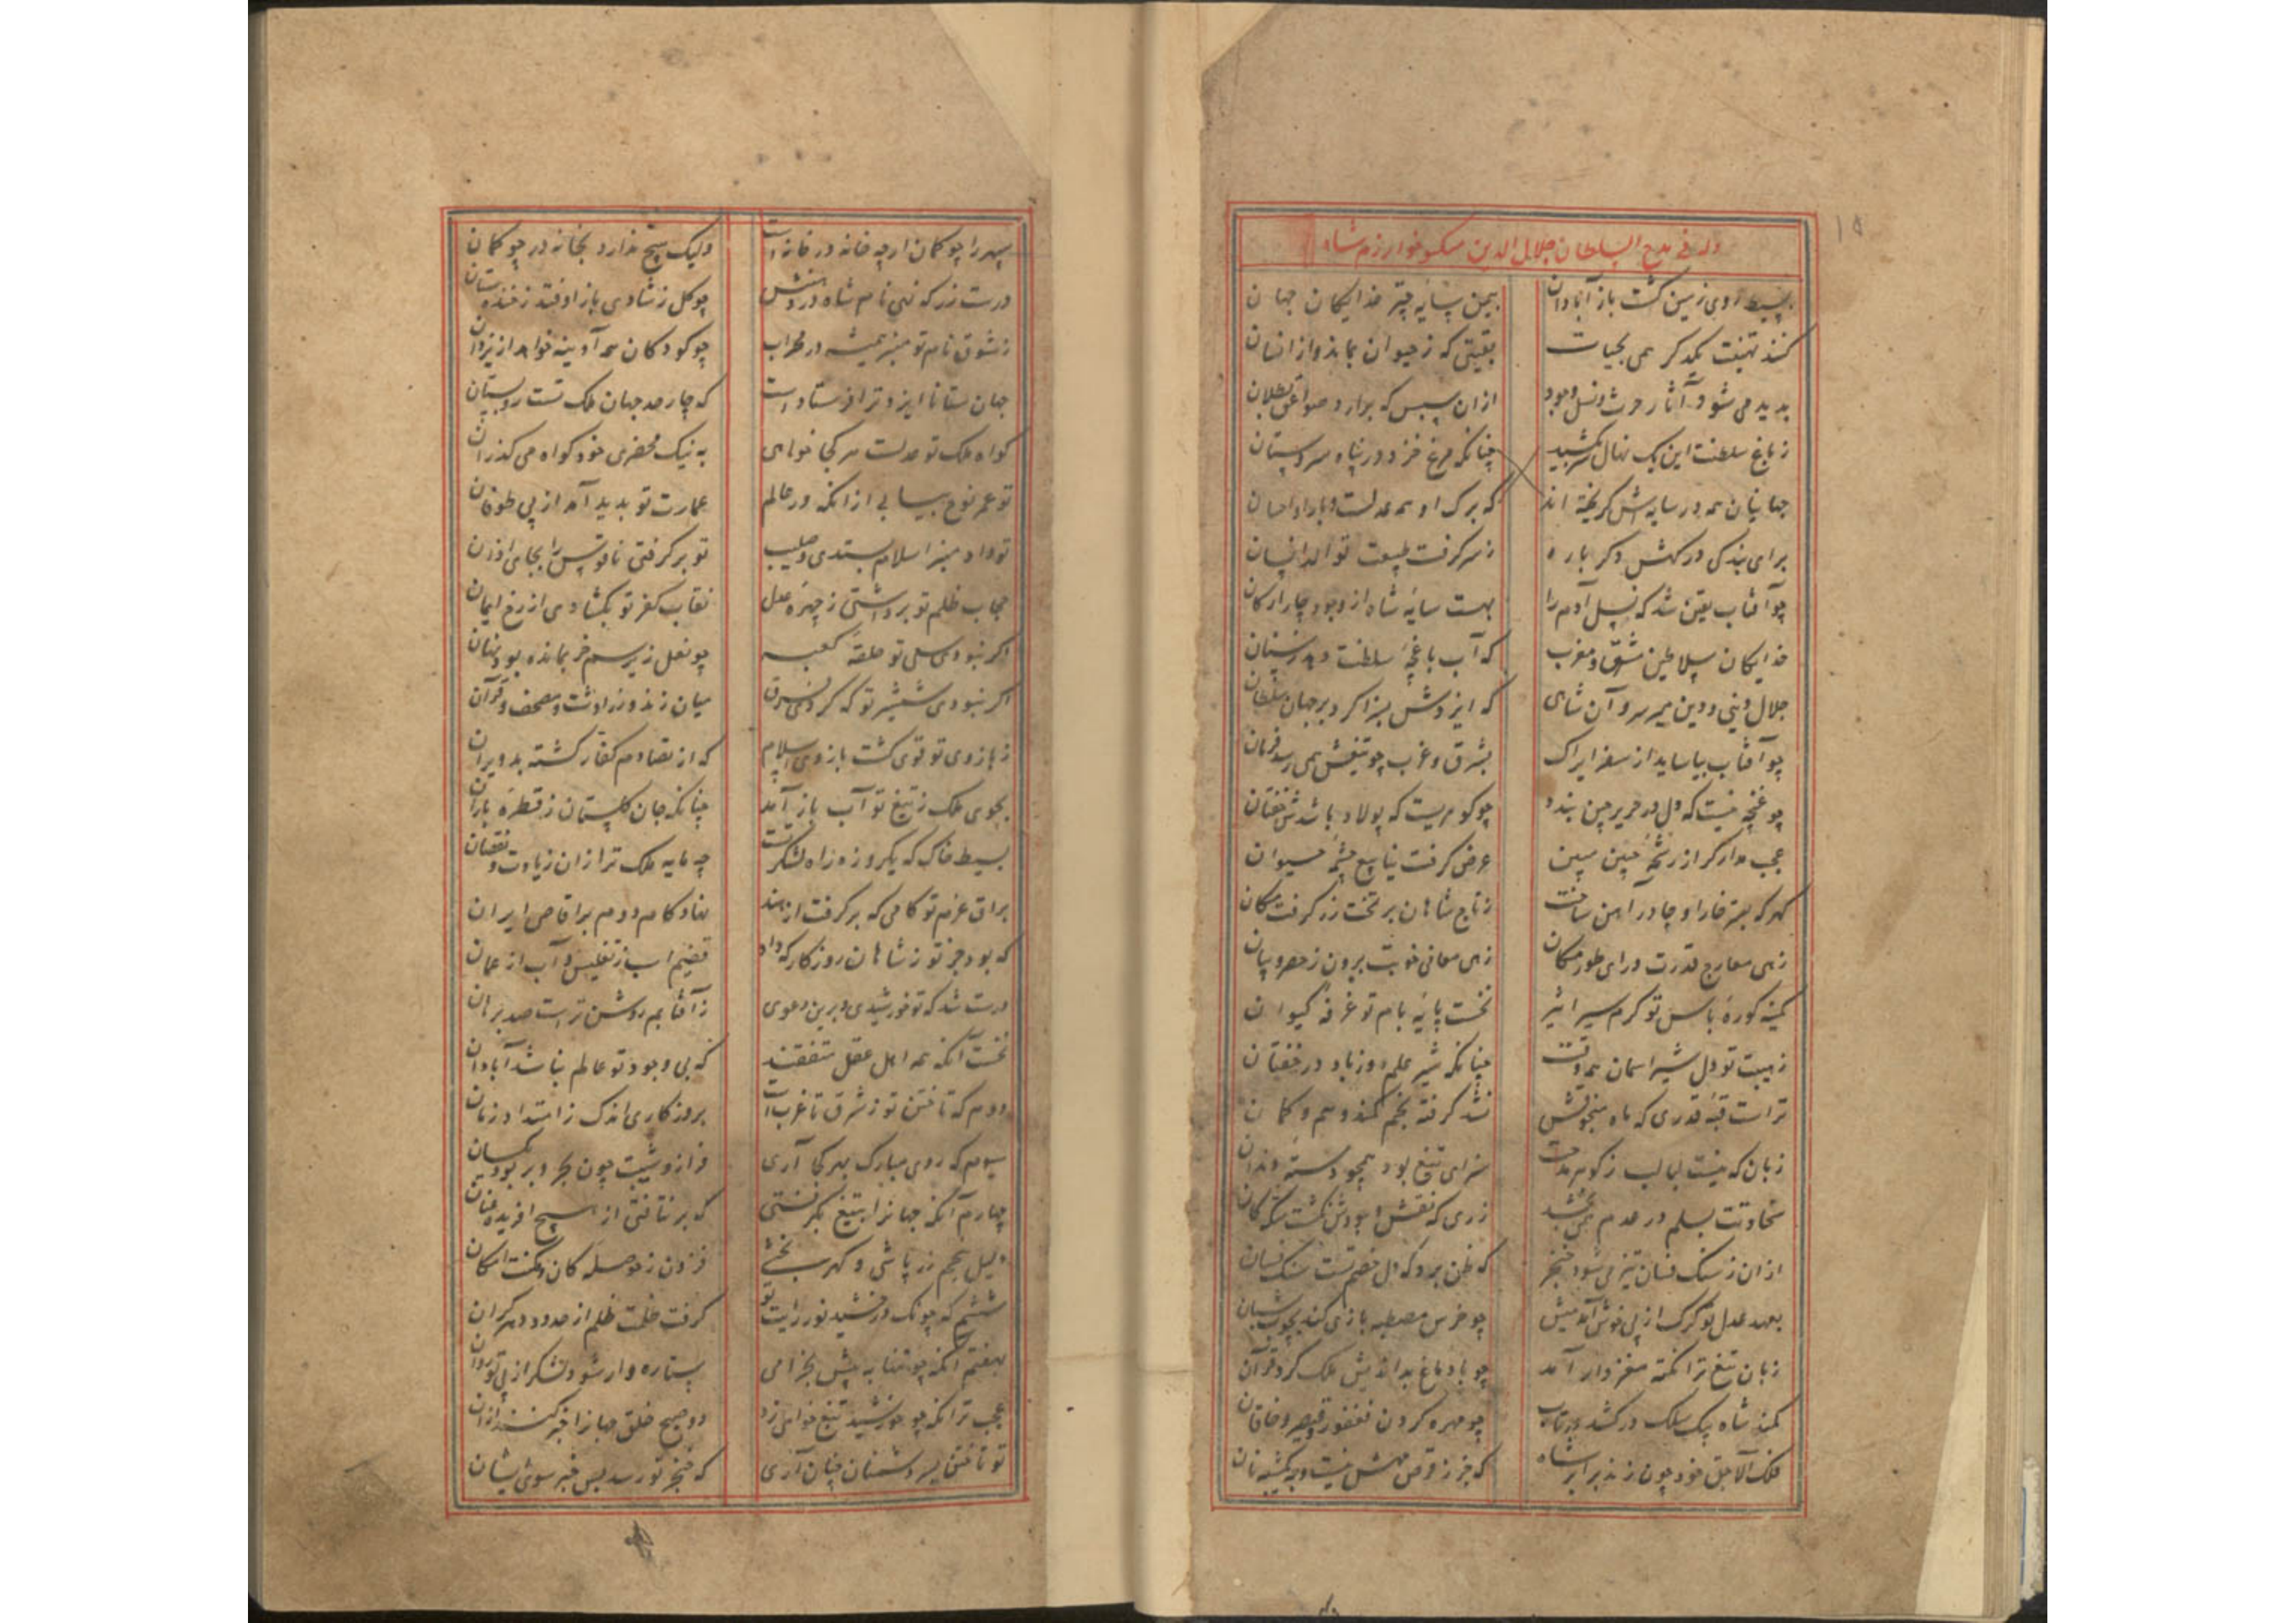 وله فی مدح السلطان جلال الدین منکبو خوارزم شاه
۱۵
بسیط روی زمین کشت باز آبادان بیمن سایه چتر خدایکان جهان
کنند تهنیت یکدکر همی بحیات بقیتی که ز حیوان بماند و از انسان
بدید می شود آثار حرث و نسل وجود ازان سپس که برارد صواعق بطلان
ز باغ سلطنت این یک نهال سر کشید چنانکه مرغ خزد در پناه سروستان
جهانیان همه در سایه اش کریخته اند که برک او همه عدلست و بار او احسان
برای بندکی درکهش دکر باره ز سر کرفت طبیعت توالد انسان
چو آفتاب یقین شد که نسل آدم را بهست سایه شاه از وجود چار ارکان
خدایکان سلاطین مشرق و مغرب که آب باغچه سلطنت دهد ز سنان
جلال دینی و دین میر سر و آن شاهی که ایزدش بسزا کرد بر جهان سلطان
چو آفتاب بیاساید از سفر ایراک بشرق و غرب چو تیغش همی رسد فرمان
چو غنچه نیست که دل در حریر چین بندد چو کوهریست که پولاد باشدش خفتان
عجب مدار کر از رشحه چنین عرض کرفت ینابیع چشمه حیوان
کهر که بستر خارا و چادر آهن ساخت ز تاج شاهان بر تخت زر کرفت مکان
زهی معارج قدرت ورای طور مکان زهی معانی خوبت برون ز حصر و بیان
کمینه کوره باس تو کرم سیر اثیر نخست پایه بام تو غرفه کیوان
ز هیبت تو دل شیر اسمان همه وقت چنانکه شیر علم روز باد در خفقان
تراست قبه قدری که ماه منجوقش نشد کرفته بخم کمند وهم و کمان
زبان که نیست لبالب ز کوهر مدحت سزای تیغ بود همچو دسته دندان
سخاوتت بسلم در عدم همی بخشد زری که نقش وجودش نکشت سکه کان
ازان ز سنک فسان تیز می شود خنجر که ظن برد که دل خصم تست سنک فسان
بعهد عدل تو کرک از پی خوش آمد میش چو خرس مصطبه بازی کند بچوب شبان
زبان تیغ ترا نکته مغزدار آمد چو با دماغ بداندیش ملک کرد قران
کمند شاه بیک سلک درکشد چو مهره کردن فغفور و قیصر و خاقان
فلک آلاجق خود چون زند برابر شاه که جز ز قرص نیست نان
سپهر را چو کمان ارچه خانه در خانه است ولیک هیچ ندارد بخانه در چو کمان
درست زر که نهی نام شاه در دهنش چو کل ز شادی باز اوفتد ز خنده ستان
ز شوق نام تو منبر همیشه در محراب چو کودکان همه آدینه خواهد از یزدان
جهان ستانا ایزد ترا فرستاد است که چار حد جهان ملک تست رو بستان
کواه ملک تو عدلست هر کجا خواهی به نیک محضری خود کواه می کذران
تو عمر نوح بیابی ازانکه در عالم عمارت تو بدید آمد از پی طوفان
تو داد منبر اسلام بستدی ز صلیب تو بر کرفتی ناقوس را بجای اذان
حجاب ظلم تو برداشتی ز چهره عدل نقاب کفر تو بکشادی از رخ ایمان
اکر نبودی سعی تو حلقه کعبه چو نعل زیر سم خر بمانده بود نهان
اکر نبودی شمشیر تو که کردی فرق میان زند و زرادشت و مصحف و قرآن
ز بازوی تو قوی کشت بازوی اسلام که از تصادم کفار کشته بد ویران
بجوی ملک ز تیغ تو آب باز آمد چنانکه جان کلستان ز قطره باران
بسیط خاک که یکروزه راه لشکر تست چه مایه ملک ترا زان زیادت و نقصان
براق عزم تو کامی که بر کرفت از هند نهاد کام دوم بر اقاصی ایران
که بود جز تو ز شاهان روزکار که داد قضیم اسب ز تفلیس و آب از عمان
درست شد که تو خورشیدی و برین دعوی ز آفتابم روشن تر است صد برهان
نخست آنکه همه اهل عقل متفقند که بی وجود تو عالم نباشد آبادان
دوم که تاختن تو ز شرق تا غرب است بروزکاری اندک ز امتداد زمان
سیوم که روی مبارک بهر کجا آری فراز و شیب چون بحر و بر بود یکسان
چهارم آنکه جهانرا بتیغ بکرفتی که برنتافتی از هیچ افریده عنان
دلیل پنجم زر پاشی و کهر بخشی فزون ز حوصله کان و مکنت امکان
ششم که چونک درخشید نور رایت تو کرفت ظلمت ظلم از حدود دهر کران
بهفتم آنکه چو تنها به پیش بخرامی ستاره وار شود لشکر از پی تو روان
عجب ترانکه چو خورشید تیغ خواهی زد دو صبح خلق جهانرا خبر کنند ازان
تو تاختن بسر دشمنان چنان آری که خنجر تو رسد پس خبر سوی ایشان